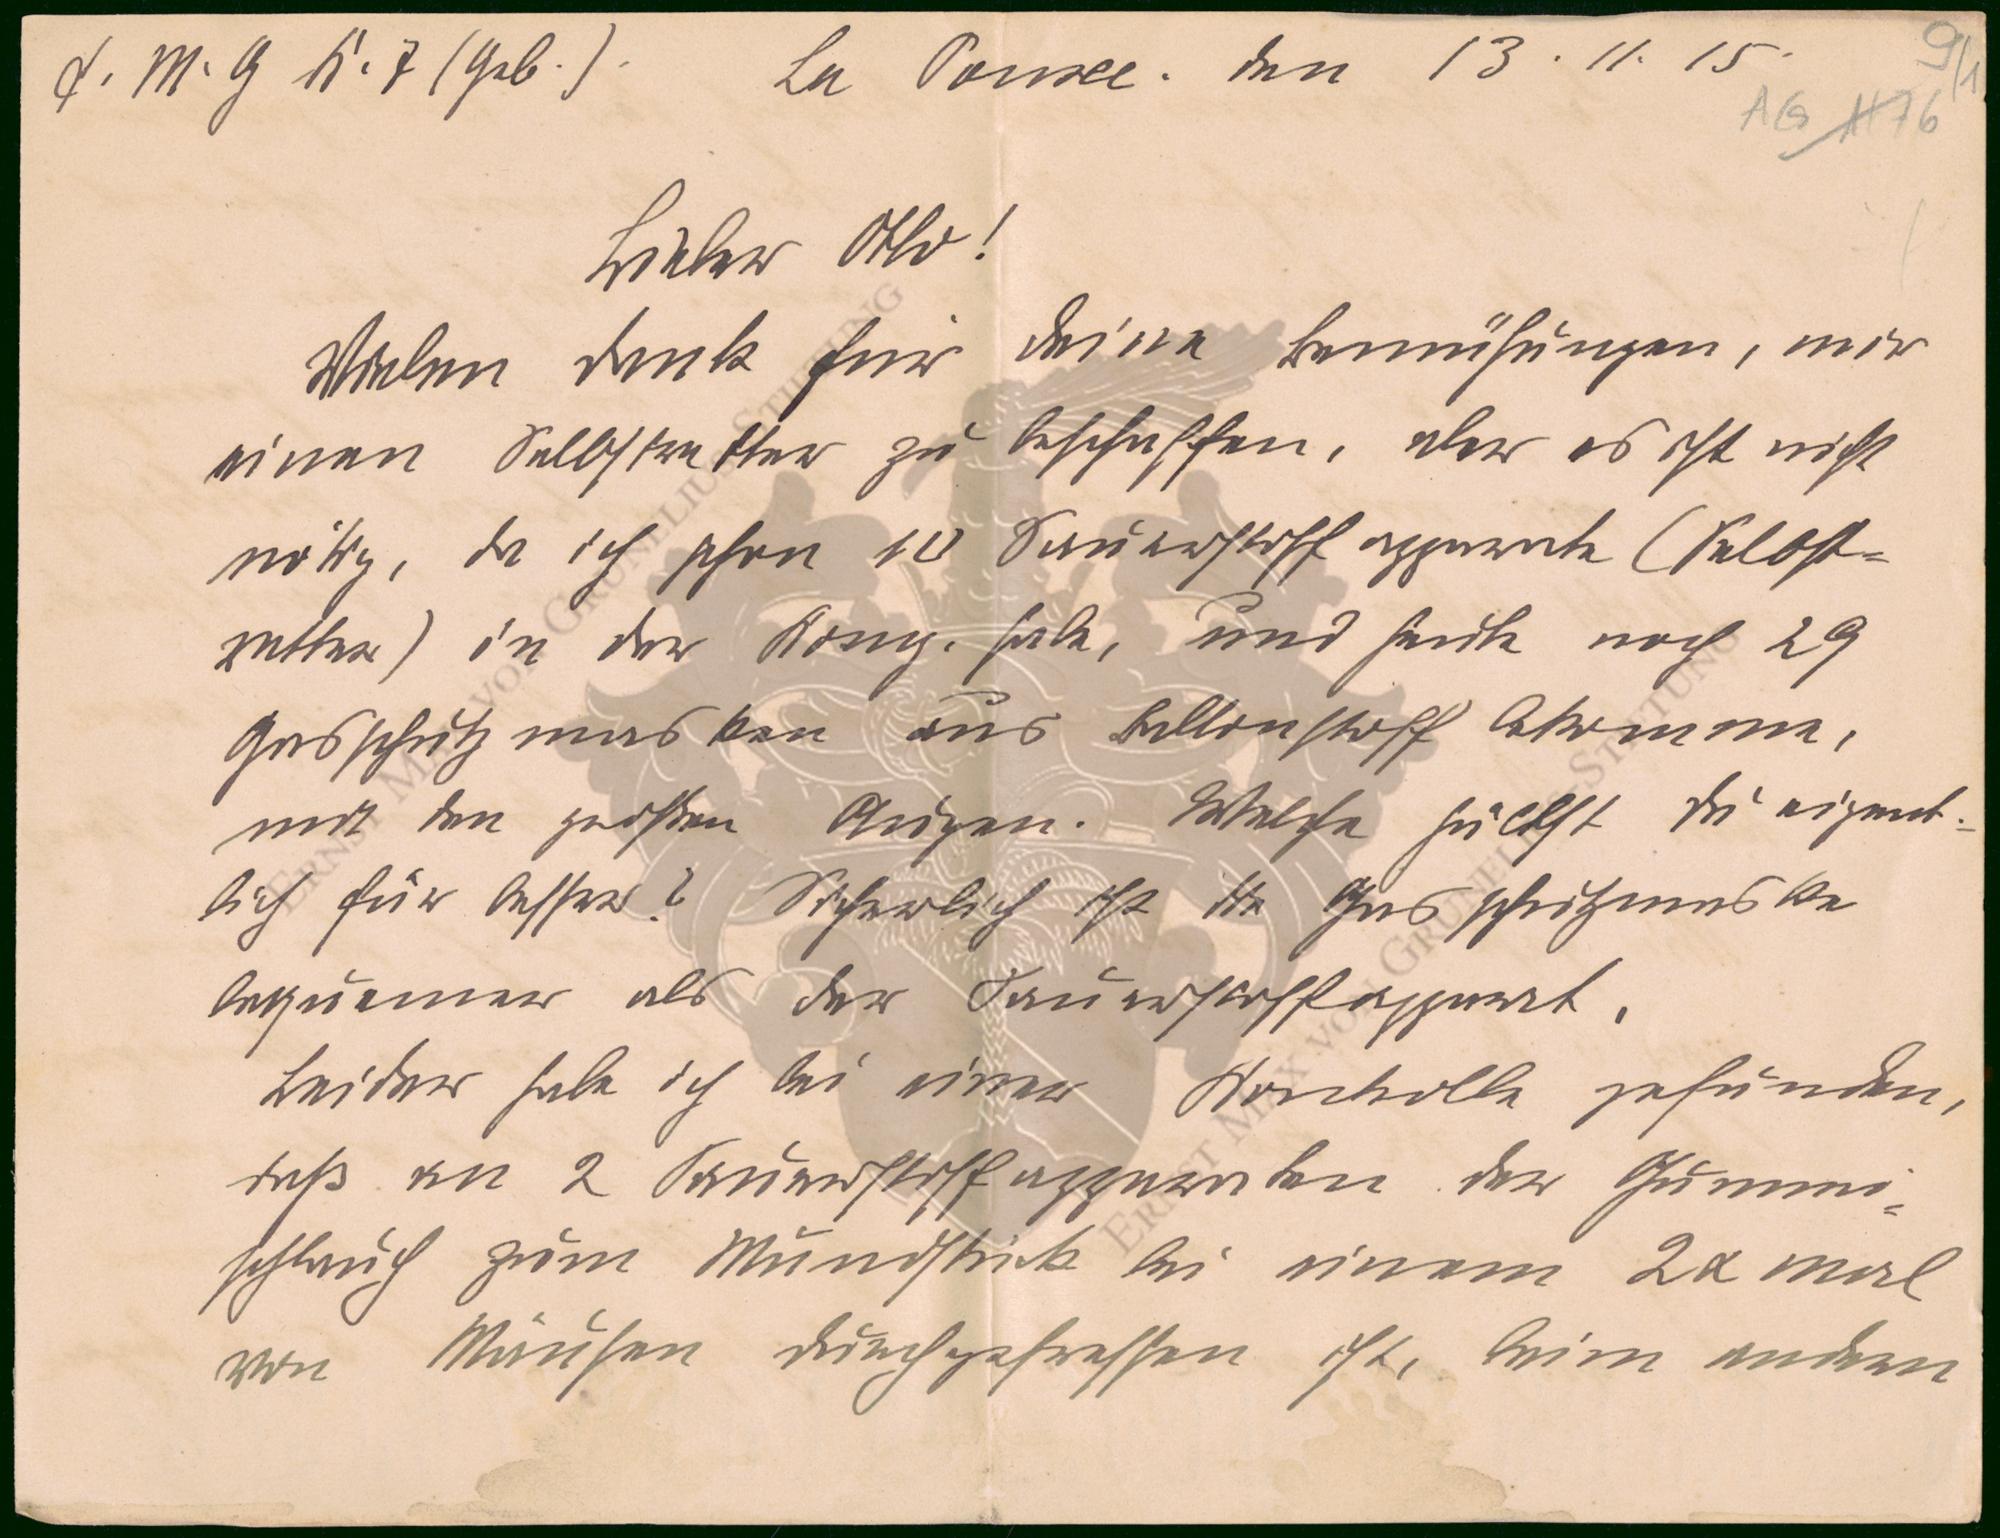 F. M. G K. 7 (Geb.). La Pousee. den 13. 11. 15.
9/1
AG 1176
Lieber Otto!
Vielen dank für deine Bemühungen, mir
einen Selbstretter zu beschaffen, aber es ist nicht
nötig, da ich schon 10 Sauerstoffapparate (Selbst-
retter) in der Komp. habe, und heute noch 29
Gasschutzmasken aus Ballonstoff bekomme,
mit den großen Augen. Welche hältst du eigent-
lich für besser? Sicherlich ist die Gasschutzmaske
bequemer als der Sauerstoffapparat.
Leider habe ich bei einer Kontrolle gefunden,
daß an 2 Sauerstoffapparaten der Gummi-
schlauch zum Mundstück bei einem 2 mal
von Mäusen durchgefressen ist, beim andern
ERNST MAX VON GRUNELIUS-STIFTUNG
ERNST MAX VON GRUNELIUS-STIFTUNG